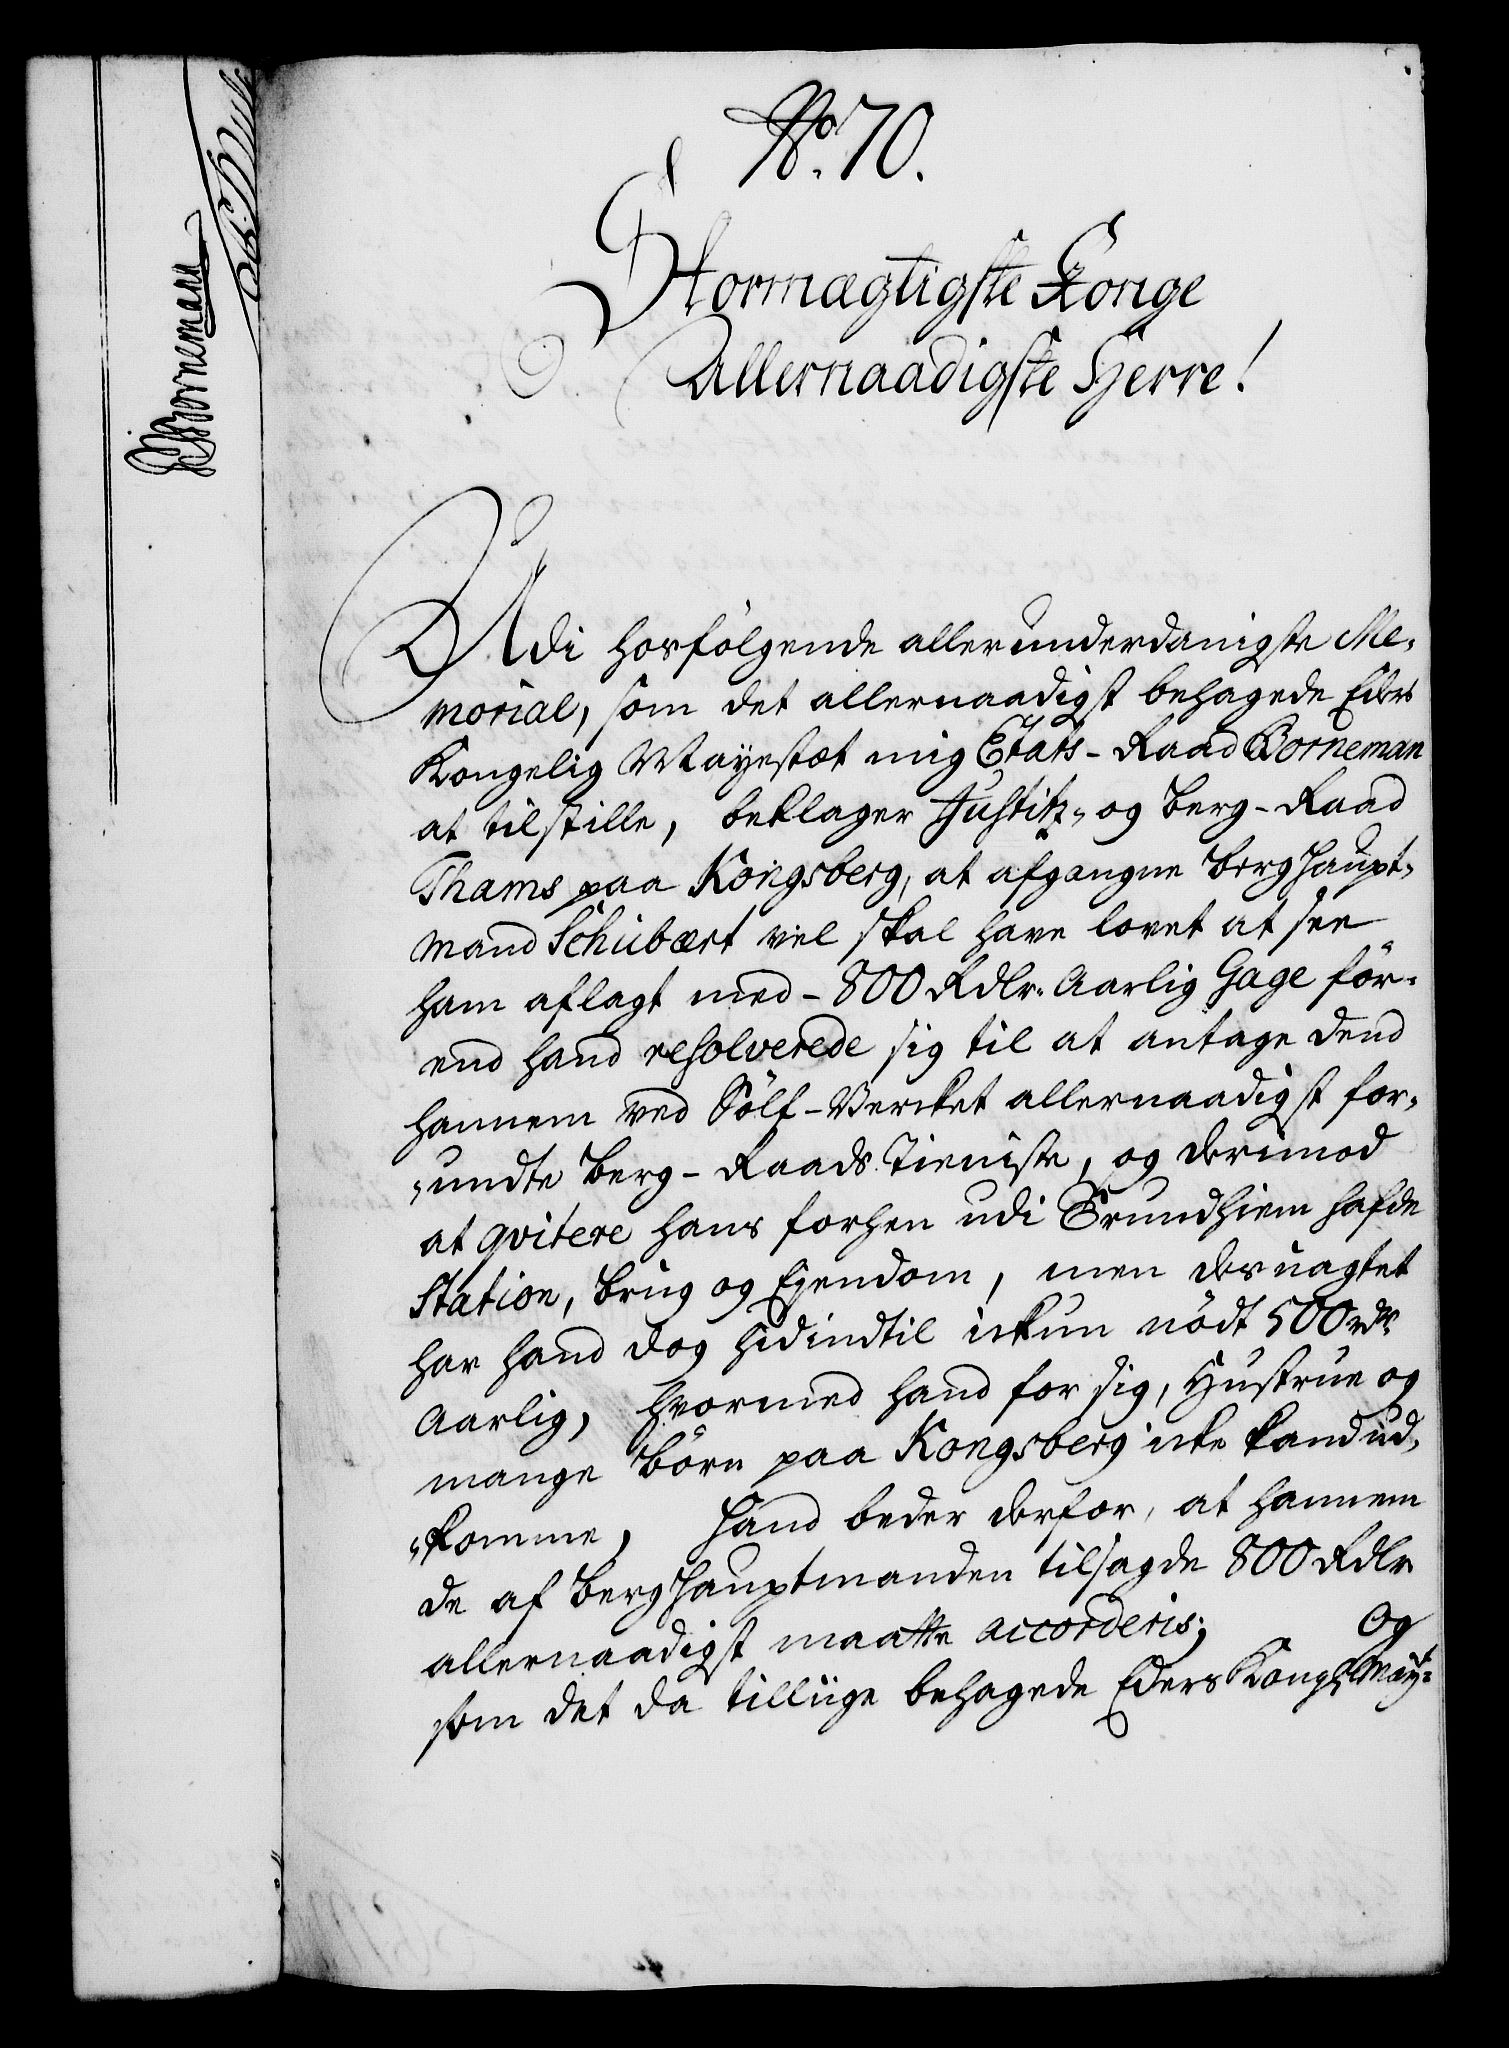 No. 70.
Stormægtigste Konge
Allernaadigste Herre!
Udi hosfölgende allerunderdanigste Me-
morial, som det allernaadigst behagede Eders
Kongelig Mayestæt mig Etats-Raad Borneman
at tilstille, beklager Justitz- og Berg-Raad
Thams paa Kongsberg, at afgangne Berghaupt-
mand Schubært vel skal have lovet at see
ham aflagt med - 800 Rdlr. Aarlig Gage för-
end hand resolverede sig til at antage dend
hannem ved Sölf-Vercket allernaadigst for-
undte Berg-Raads Tieniste, og derimod
at qvitere hans forhen udi Trundhiem hafde
Station, Brug og Ejendom, men der uagtet
har hand dog hidindtil ickun nödt 500 rdr
Aarlig, hvormed hand for sig, Hustrue og
mange Börn paa Kongsberg icke kand ud-
komme, Hand beder derfor, at hannem
de af Berghauptmanden tilsagde 800 Rdlr
allernaadigst maatte accorderis; Og
som det da tilliige behagede Eders Kongl. May:
Borneman